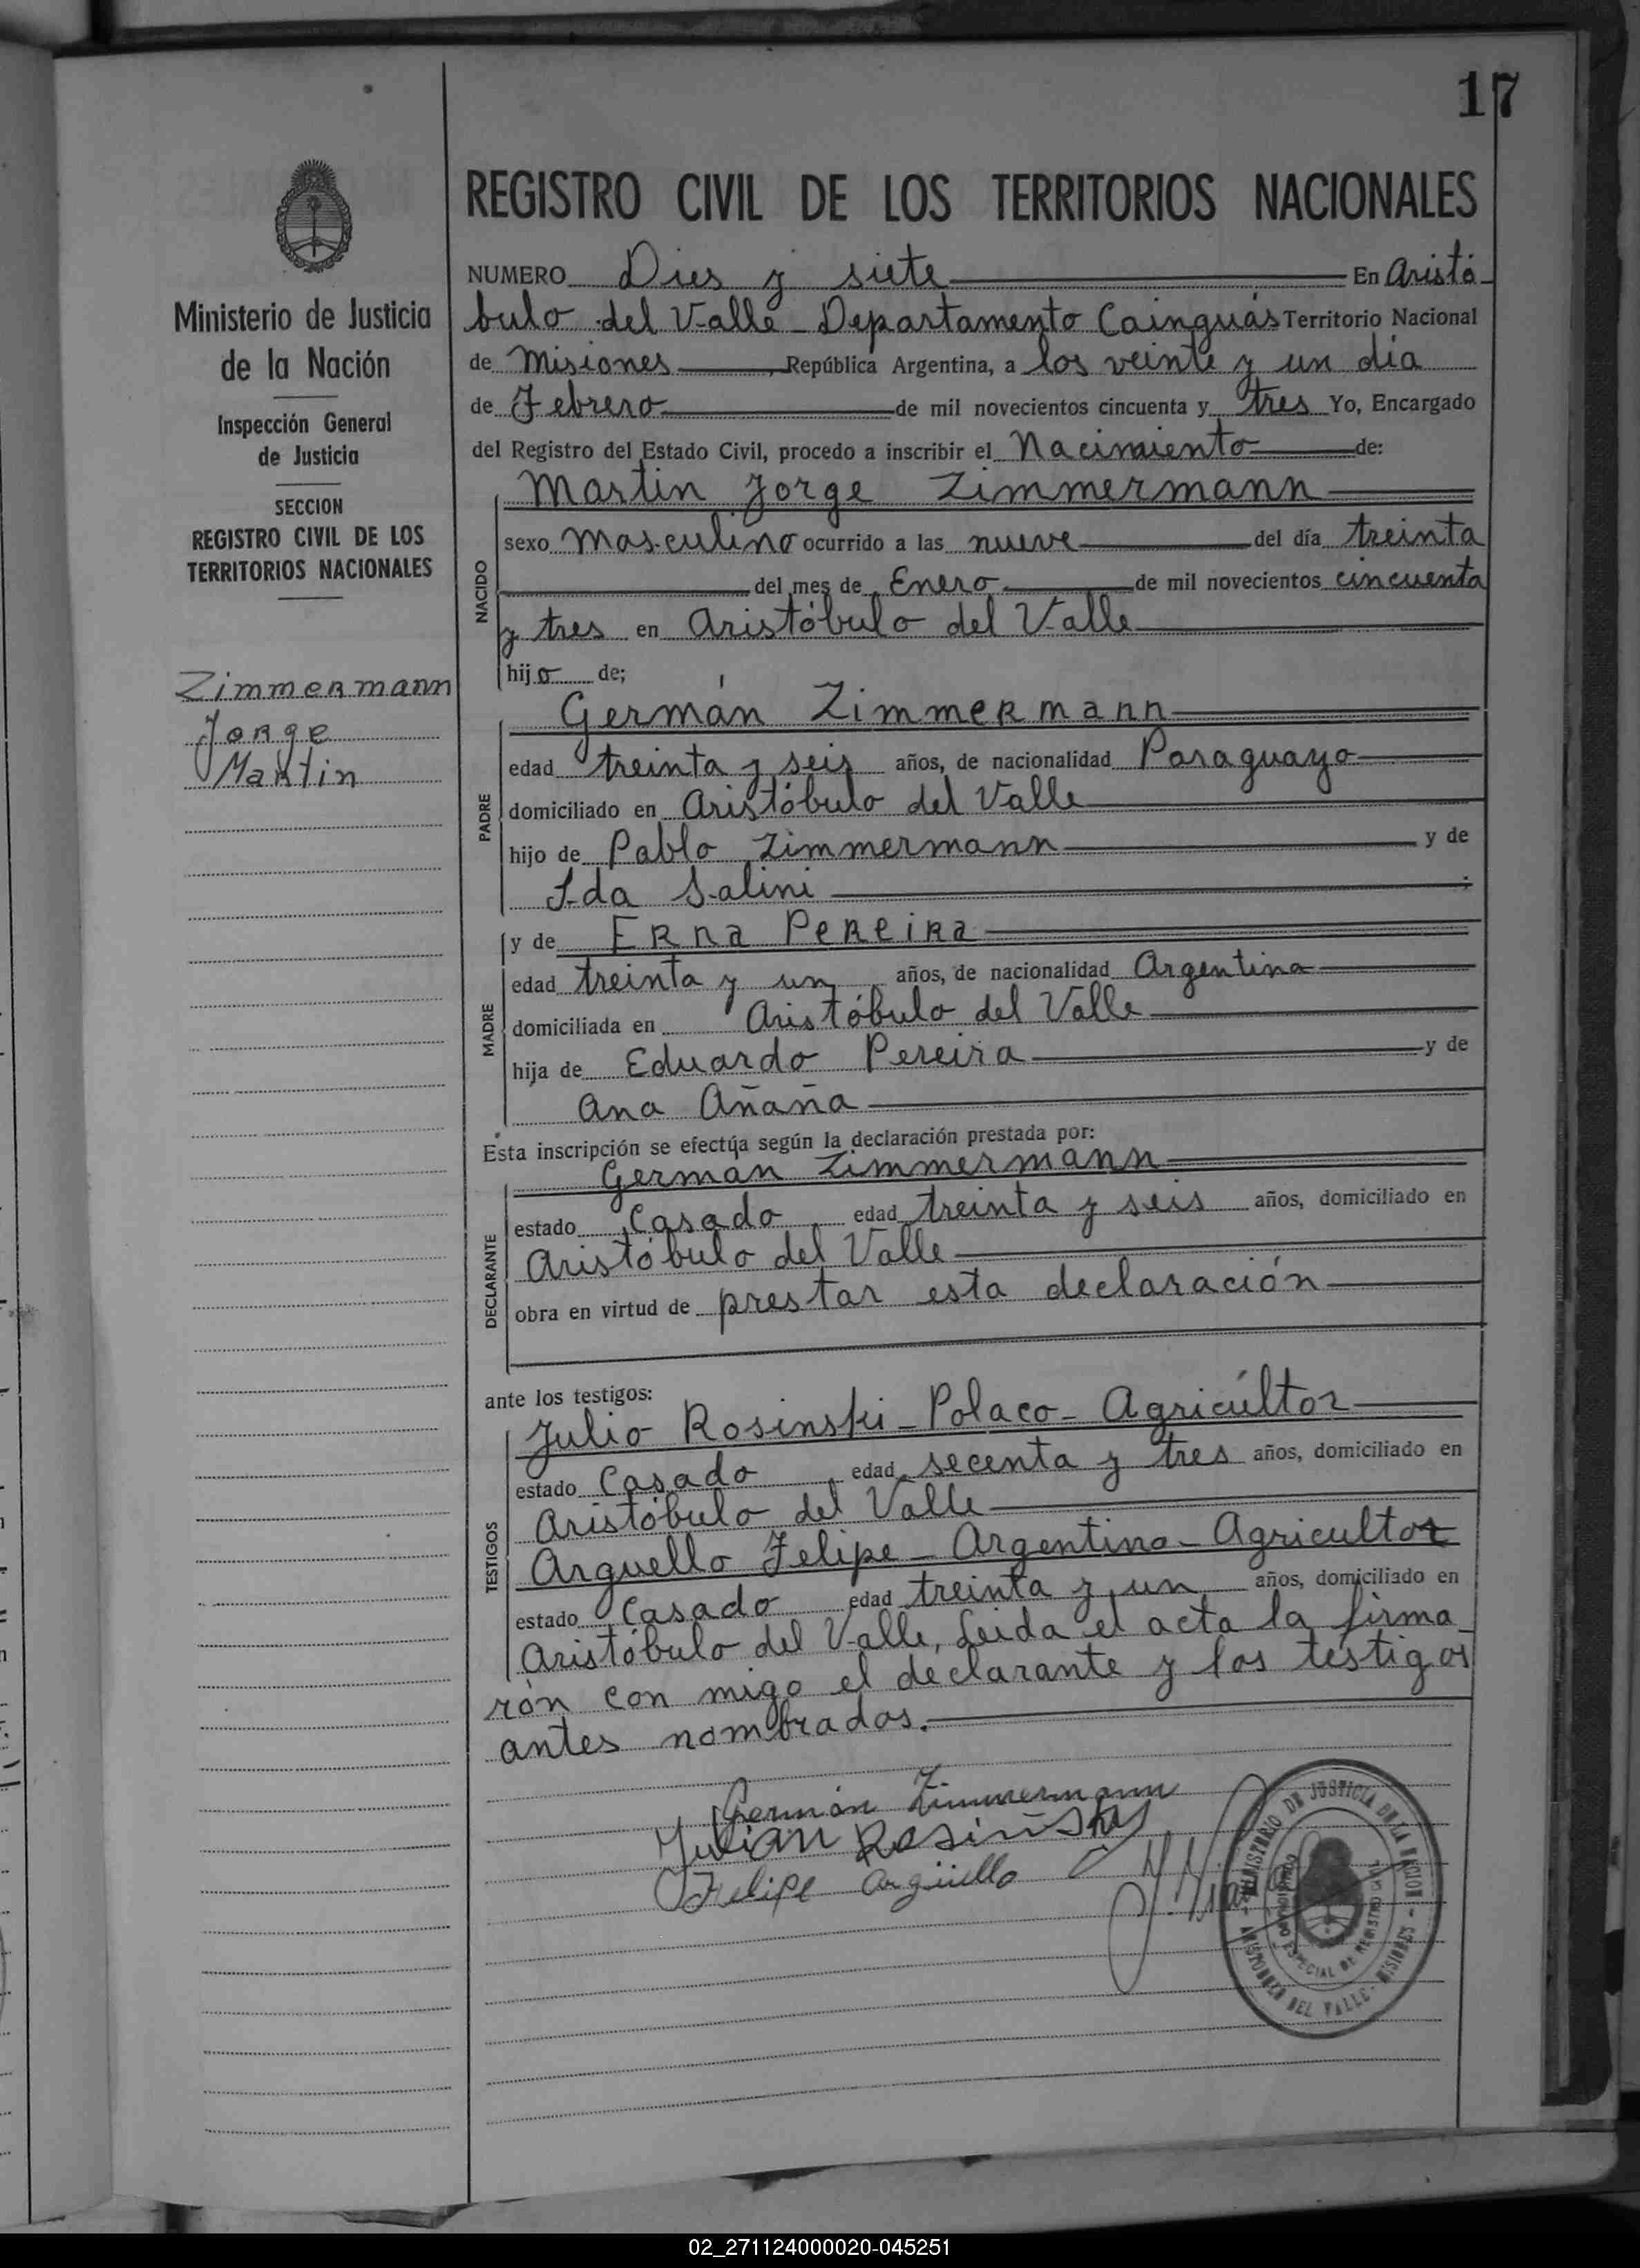 17
Ministerio de Justicia
de la Nación
Inspección General
de Justicia
SECCION
REGISTRO CIVIL DE LOS
TERRITORIOS NACIONALES
Zimmermann
Jorge
Martin
REGISTRO CIVIL DE LOS TERRITORIOS NACIONALES
NUMERO Dies y siete En Aristó-
bulo del Valle - Departamento Cainguás Territorio Nacional
de Misiones, República Argentina, a los veinte y un día
de Febrero de mil novecientos cincuenta y tres Yo, Encargado
del Registro del Estado Civil, procedo a inscribir el Nacimiento de:
NACIDO
Martin Jorge Zimmermann
sexo masculino ocurrido a las nueve del día treinta
del mes de Enero de mil novecientos cincuenta
y tres en Aristóbulo del Valle
hijo de;
PADRE
Germán Zimmermann
edad treinta y seis años, de nacionalidad Paraguayo
domiciliado en Aristóbulo del Valle
hijo de Pablo Zimmermann y de
Ida Salini ;
MADRE
y de Erna Pereira
edad treinta y un años, de nacionalidad Argentina
domiciliada en Aristóbulo del Valle
hija de Eduardo Pereira y de
Ana Añaña
Esta inscripción se efectúa según la declaración prestada por:
DECLARANTE
Germán Zimmermann
estado Casado edad treinta y seis años, domiciliado en
Aristóbulo del Valle
obra en virtud de prestar esta declaración
ante los testigos:
TESTIGOS
Julio Rosinski - Polaco - Agricúltor
estado Casado edad secenta y tres años, domiciliado en
Aristóbulo del Valle
Arguello Felipe - Argentino - Agricultor
estado Casado edad treinta y un años, domiciliado en
Aristóbulo del Valle, Leida el acta la firma-
rón con migo el declarante y los testigos
antes nombrados.
Germán Zimmermann
Julian Rosinski
Felipe Argüello
MINISTERIO DE JUSTICIA DE LA NACION
ARISTOBULO DEL VALLE - MISIONES -
02_271124000020-045251